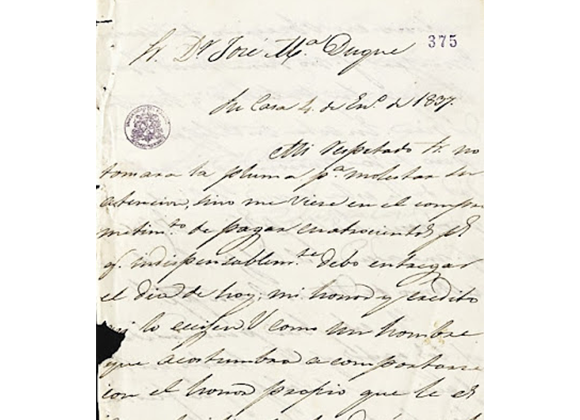 Sr. Dn. José Ma. Duque
375
Su Casa 4 de Eno. de 1837.
Mi respetado Sr. no
tomara la pluma pa. molestar su
atencion, sino me viese en el compro
metimto. de pagar cuatrocientos ps.
q. indispensablemte. debo entregar
el dia de hoy; mi honor y credito
lo exijen V como un hombre
que acostumbra a comportarse
con el honor propio que le es